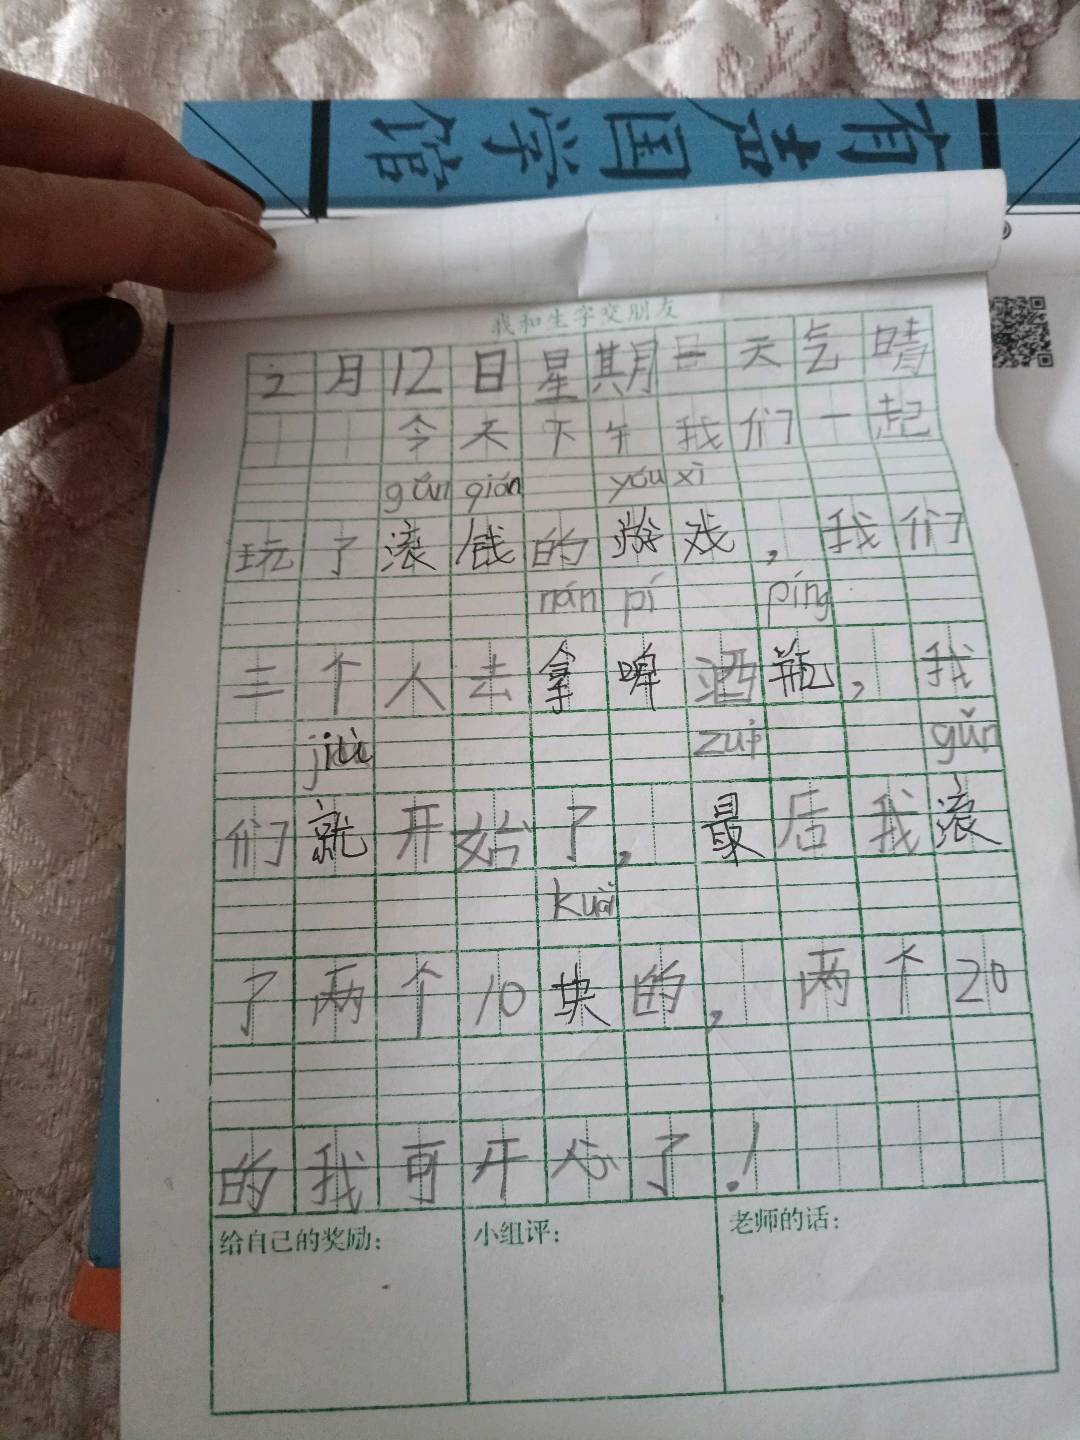 有声国学馆
我和生字交朋友
2月12日星期日天气晴
今天下午我们一起
gǔn qián yóu xì
玩了滚钱的游戏,我们
nán pí píng
三个人去拿啤酒瓶,我
jiù zuì gǔn
们就开始了,最后我滚
kuài
了两个10块的,两个20
的我可开心了!
给自己的奖励:
小组评:
老师的话: